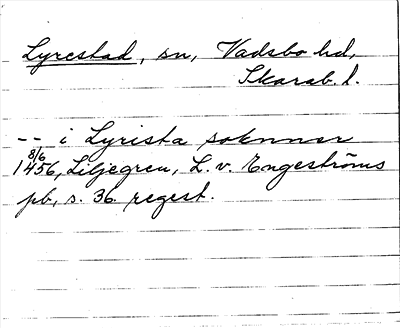 Lyrestad, sn, Vadsbo hd,
Skarab. l.
-- i Lyrista soknner
8/6
1456, Liljegren, L. v. Engeströms
pb, s. 36 regest.